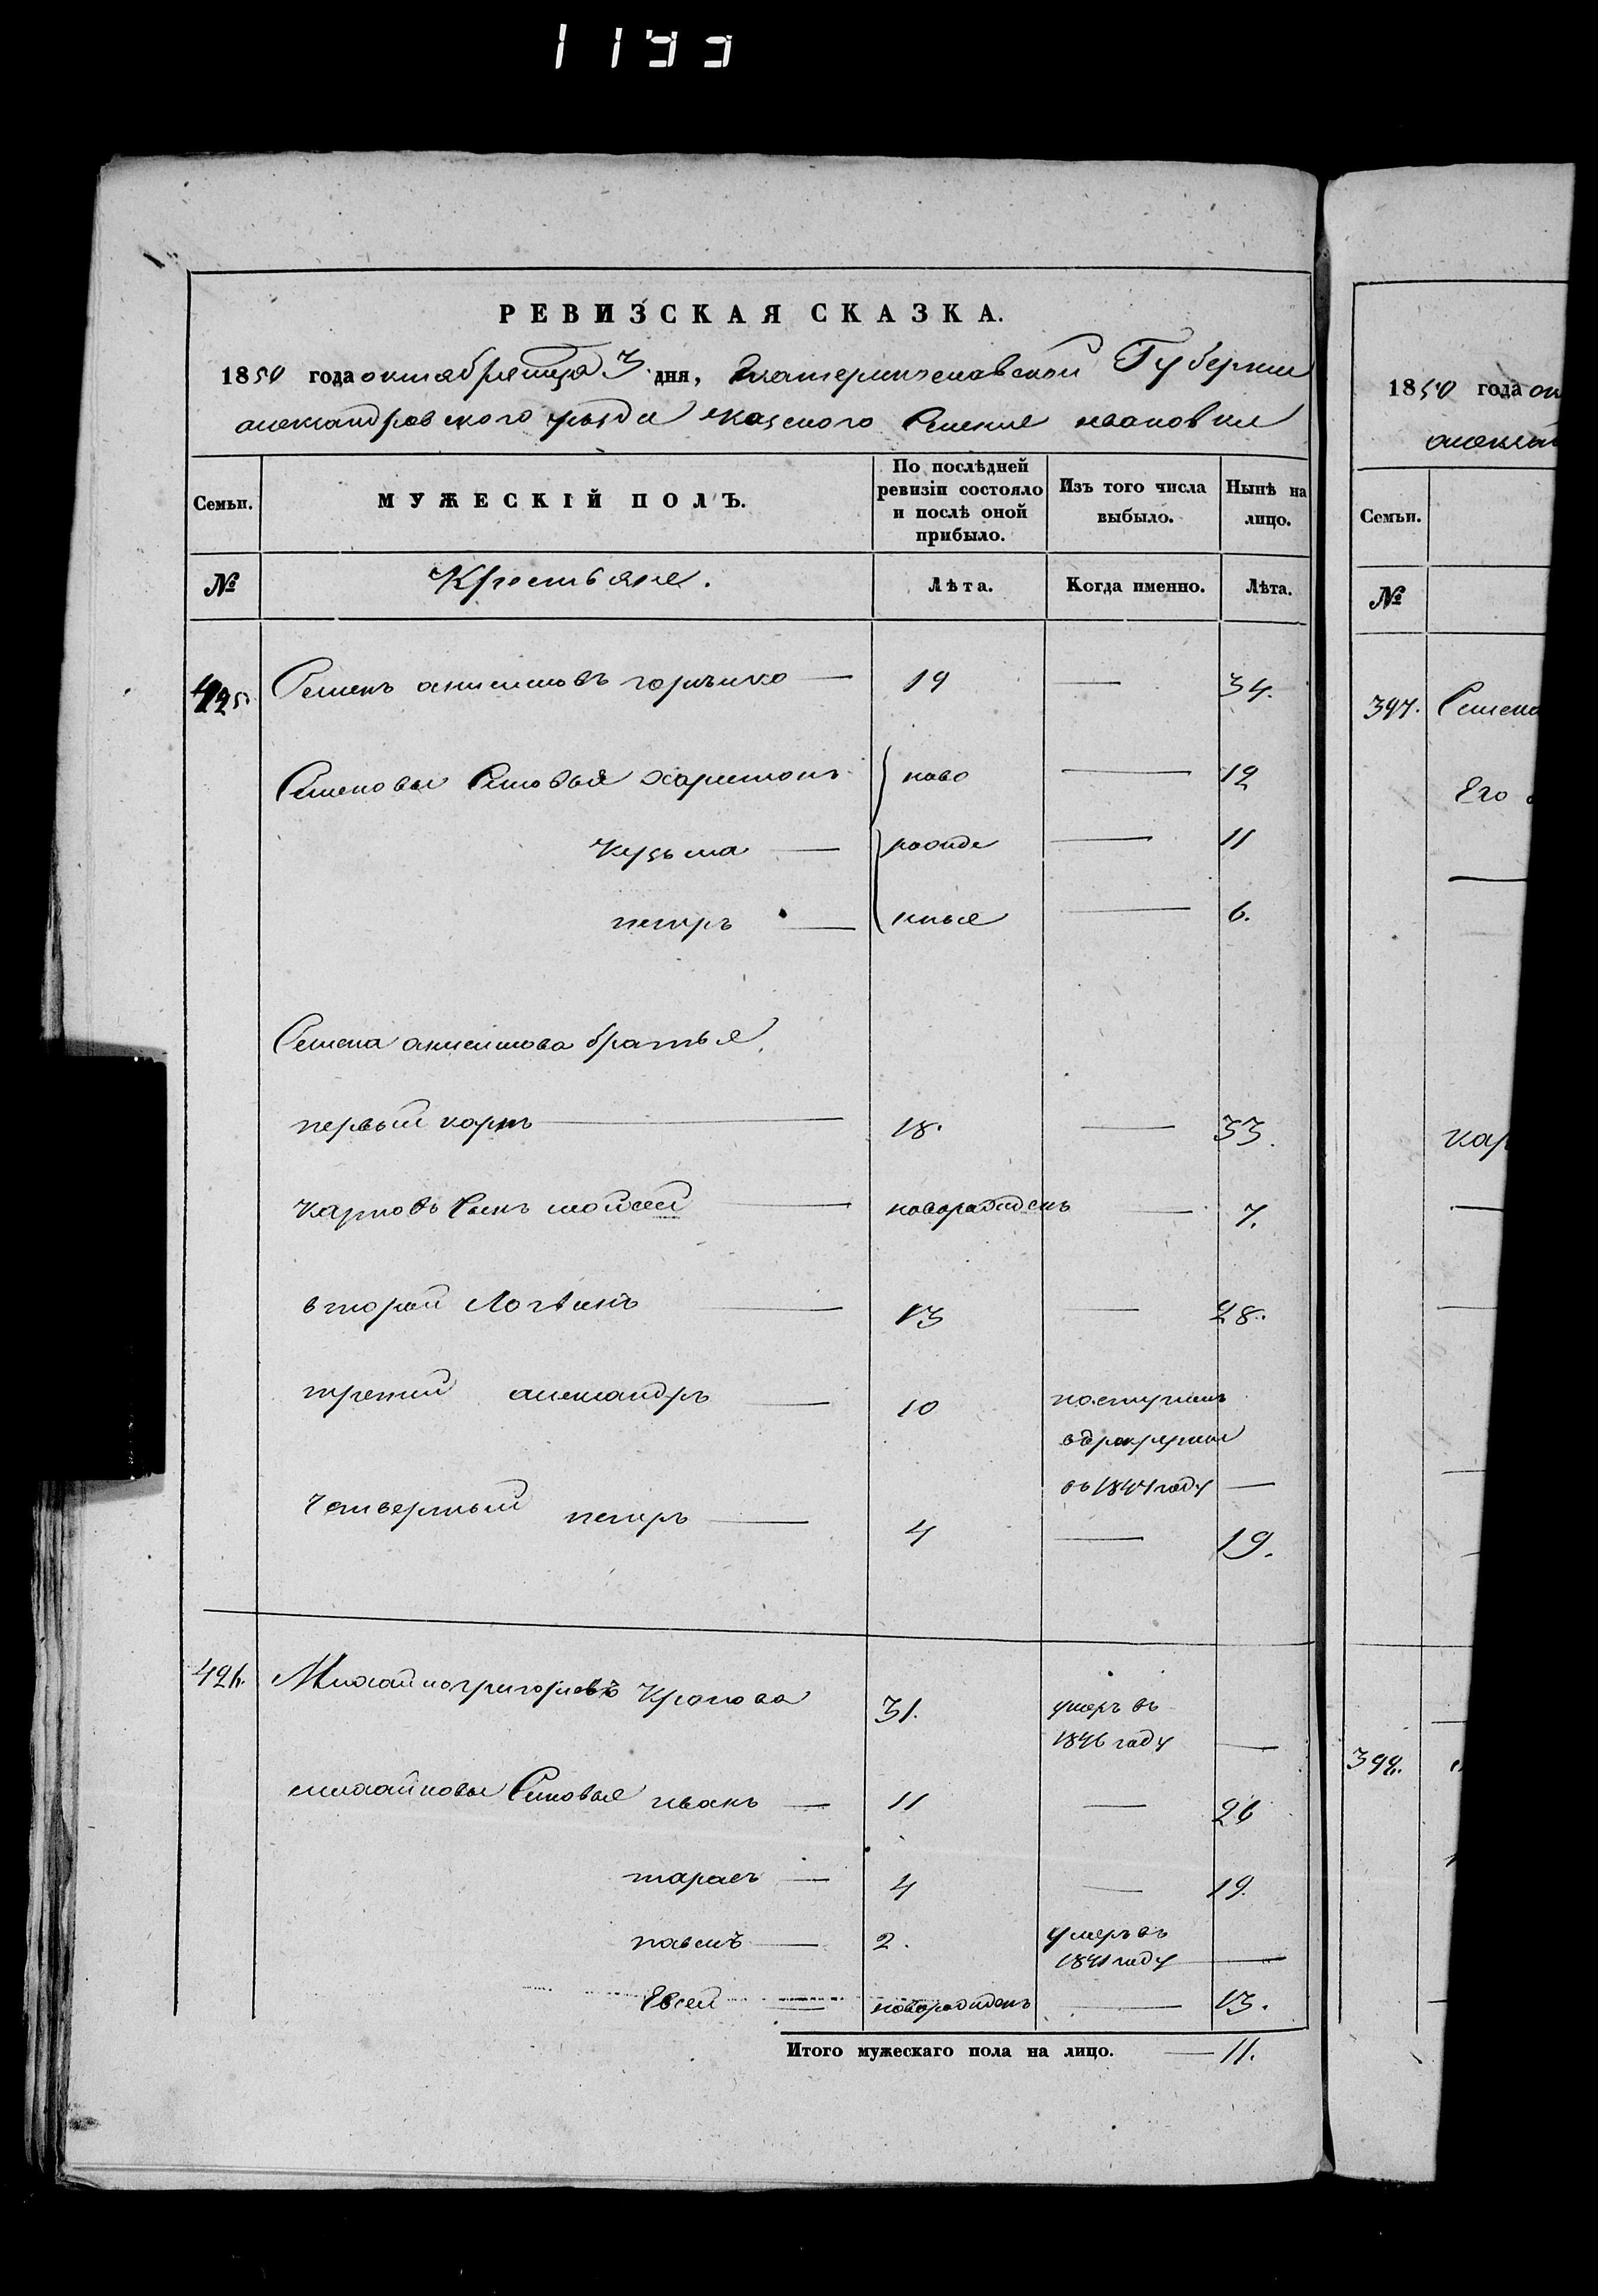 1133
РЕВИЗСКАЯ СКАЗКА.
1850 года октября месяца 3 дня, Екатеринославской Губернии
александровского уезда казеного Селения ивановки
Семьи. МУЖЕСКІЙ ПОЛЪ. По послѣдней ревизіи состояло и послѣ оной прибыло. Изъ того числа выбыло. Нынѣ на лицо.
№ Крестьяне. Лѣта. Когда именно. Лѣта.
425. Семенъ анисимовъ — 19 — 34.
Семеновы Синовья харитонъ ново — 12
Кузьма — рожде — 11
петръ — нные — 6.
Семена анисимова братья
первый карпъ — 18. — 33.
Карповъ Сынъ мойсей — новорожденъ — 7.
вторый Логвинъ — 13 — 28.
третий александръ — 10 поступилъ
в рекруты
въ 1844 году —
Четвертый петръ — 4 — 19.
426. Михайло григорьевъ 31. умеръ въ
1846 году —
михайловы Синовья иванъ — 11 — 26
тарасъ — 4 — 19.
павелъ — 2. умеръ въ
1841 году —
Евсей — новорожденъ — 13.
Итого мужескаго пола на лицо. — 11.
1850 года ок
алексан
Семьи.
№
397. Семена
Его
кар
399.